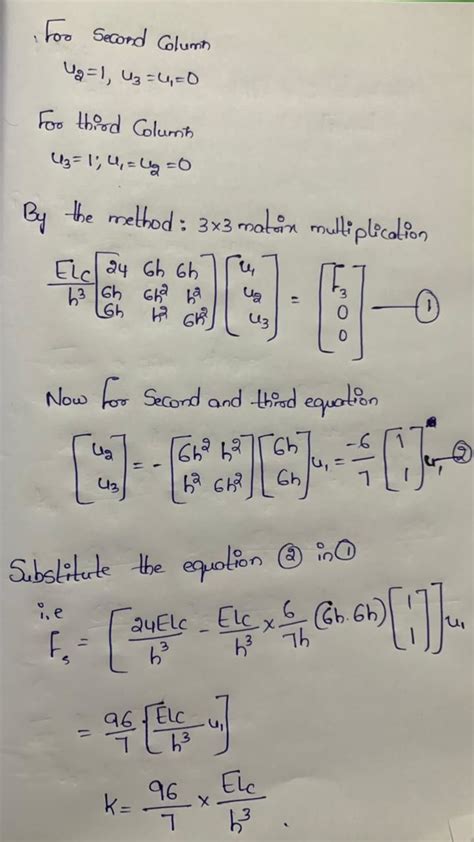 For Second Column
u₂=1, u₃=u₁=0
For third Column
u₃=1; u₁=u₂=0
By the method: 3×3 matrix multiplication
EIc/h³ [24 6h 6h; 6h 6h² h²; 6h h² 6h²] [u₁; u₂; u₃] = [F₃; 0; 0] — ①
Now for Second and third equation
[u₂; u₃] = -[6h² h²; h² 6h²] [6h; 6h] u₁ = -6/7 [1; 1] u₁ — ②
Substitute the equation ② in ①
i.e
Fₛ = [24EIc/h³ - EIc/h³ × 6/7h (6h·6h) [1; 1]] u₁
= 96/7 [EIc/h³ u₁]
k = 96/7 × EIc/h³ .